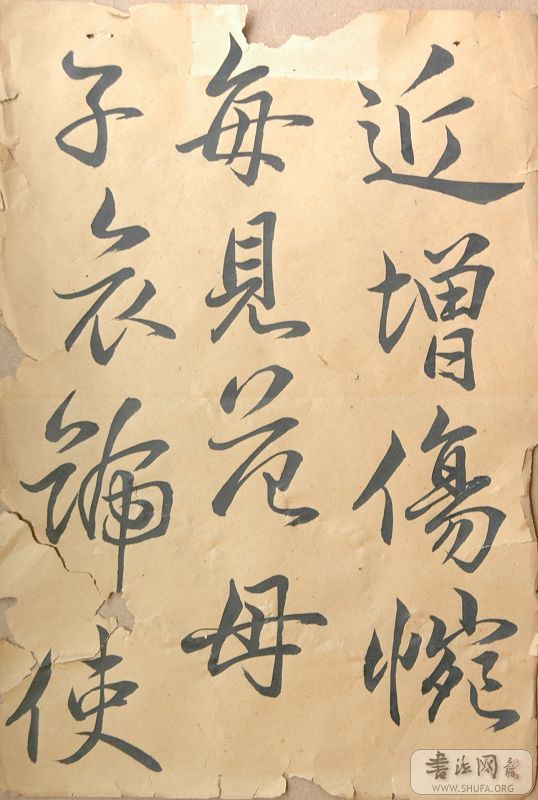 近增傷惋
每見范母
子哀號使
書法网
WWW.SHUFA.ORG